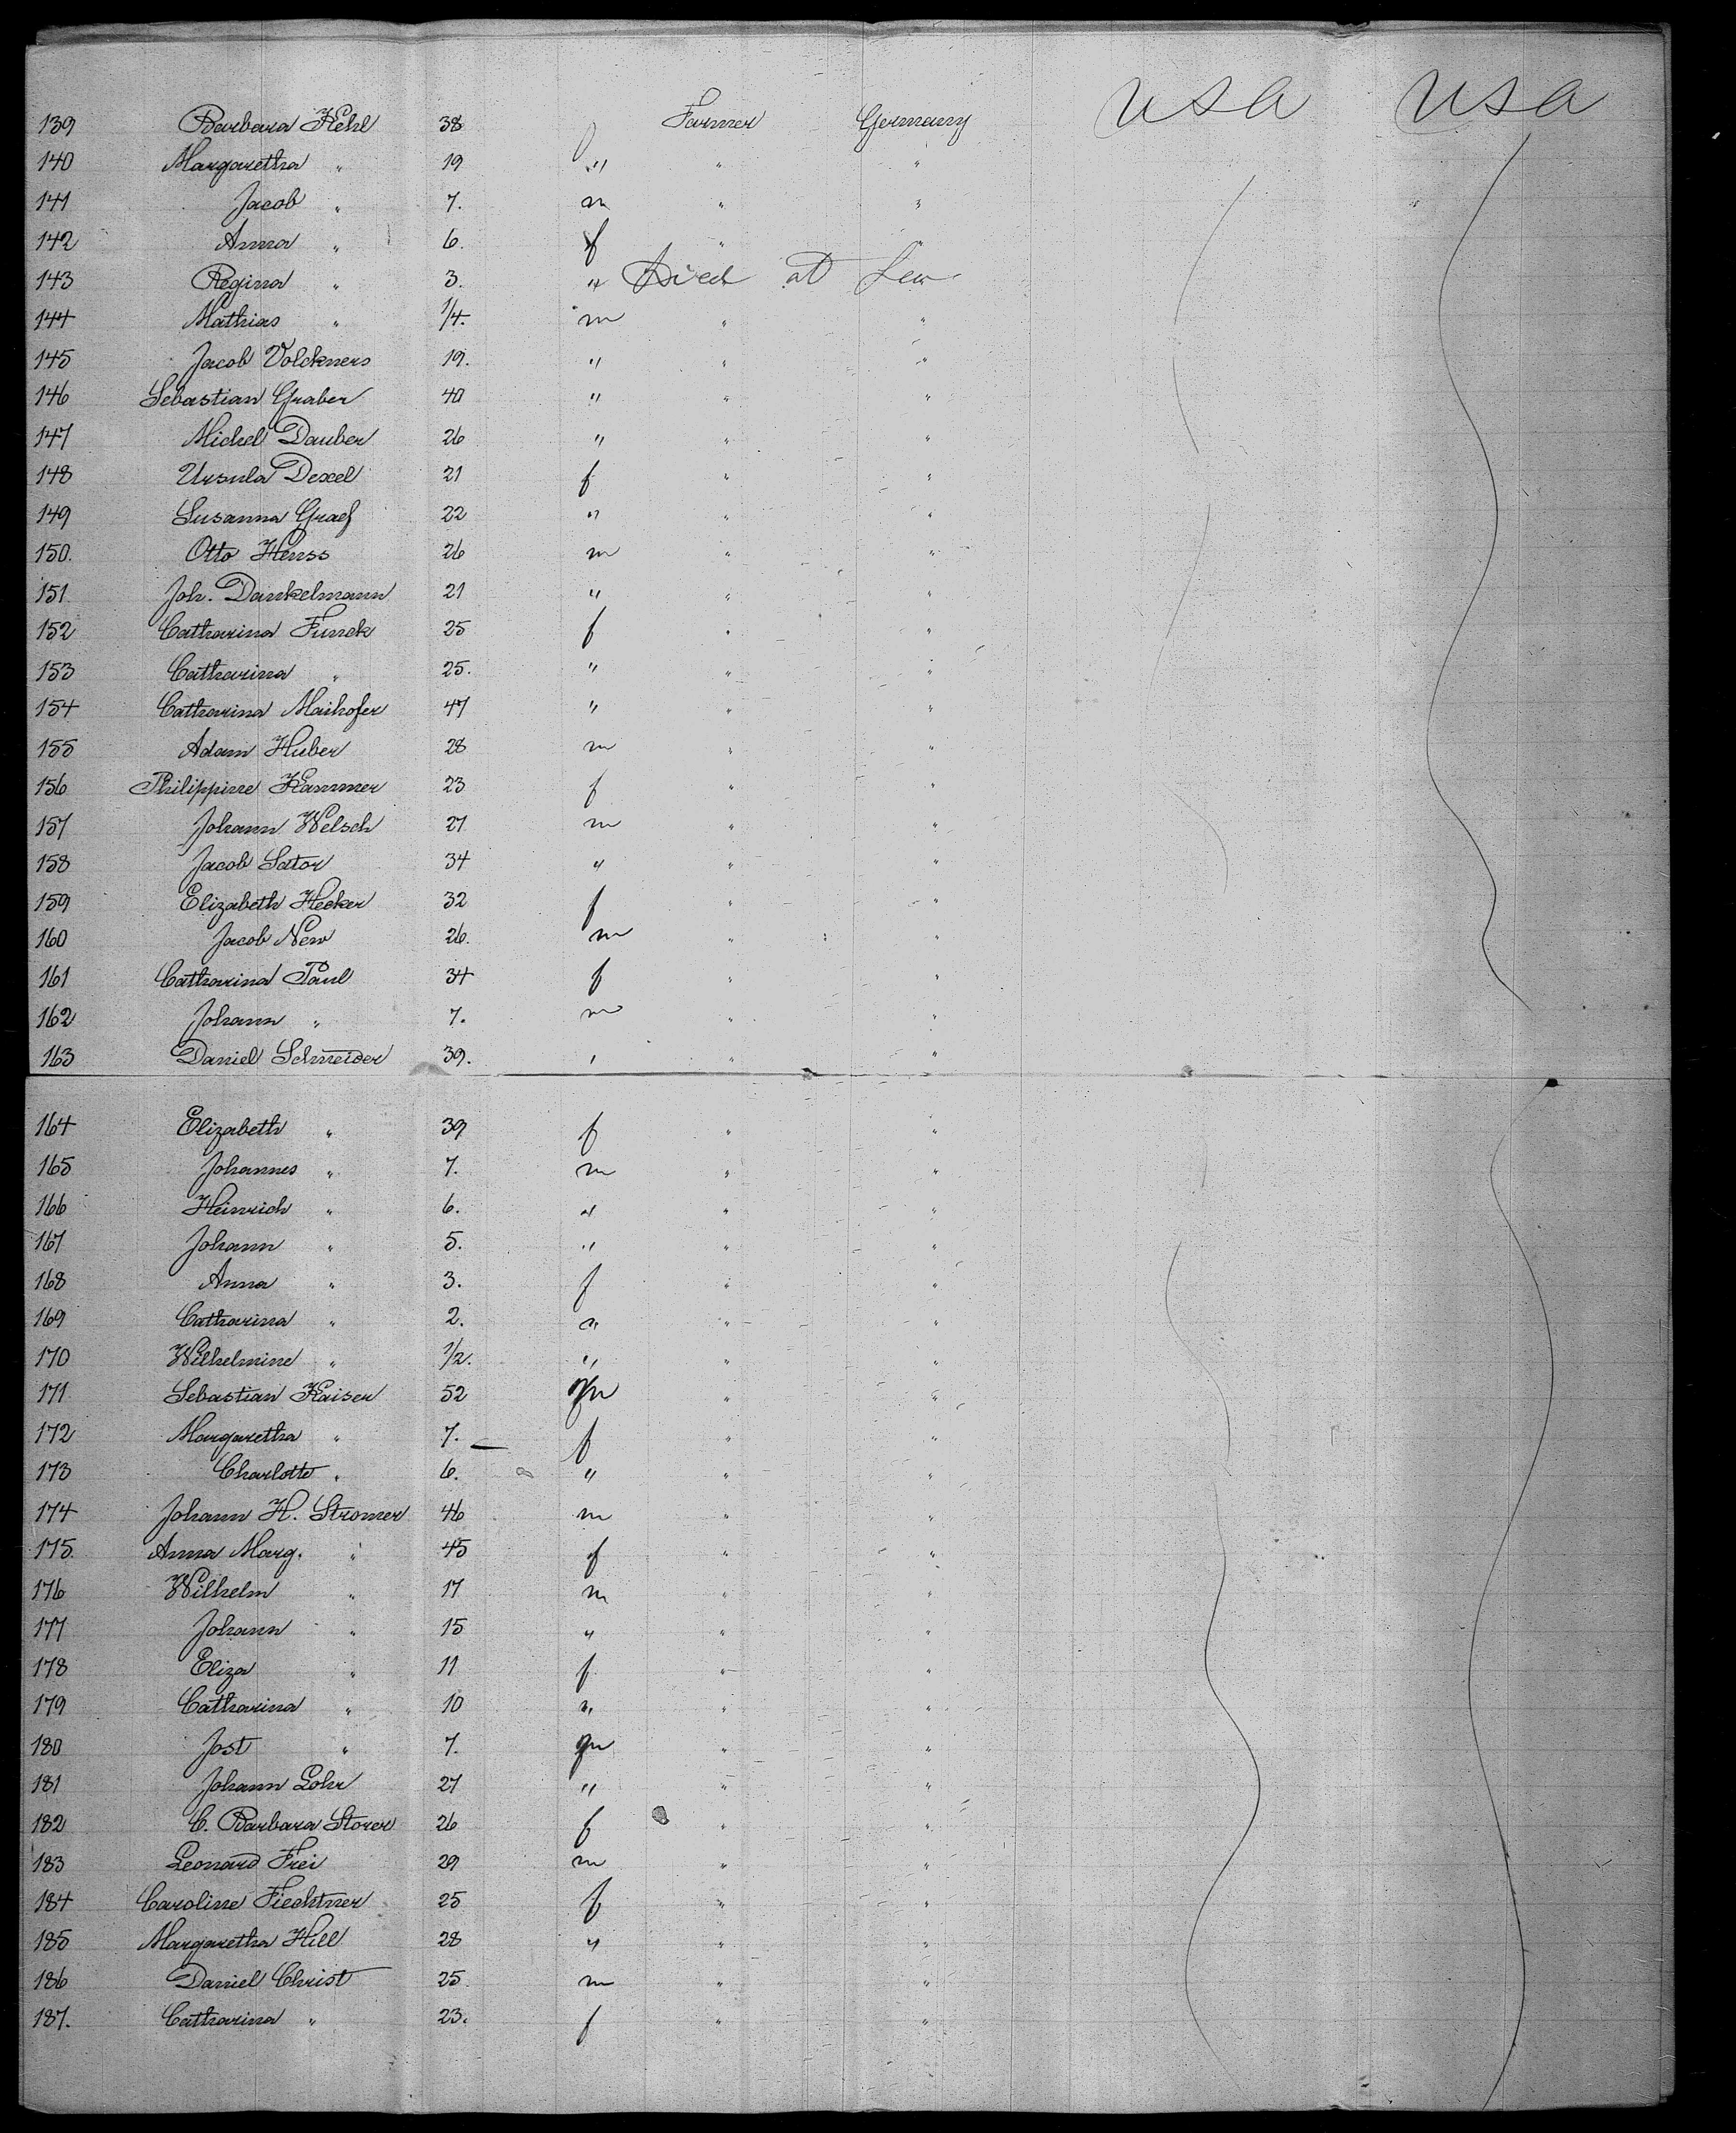 139 Barbara Kehl 38 f Farmer Germany USA USA
140 Margaretha " 19 " " "
141 Jacob " 7. m " "
142 Anna " 6. f " "
143 Regina " 3. " Died at Sea
144 Mathias " 1/4. m " "
145 Jacob Volckners 19. " " "
146 Sebastian Graber 40 " " "
147 Michel Dauber 26 " " "
148 Ursula Dexel 21 f " "
149 Susanna Graef 22 " " "
150. Otto Henss 26 m " "
151 Joh. Dankelmann 21 " " "
152 Catharina Funck 25 f " "
153 Catharina " 25. " " "
154 Catharina Maihofer 47 " " "
155 Adam Huber 28 m " "
156 Philippine Kammer 23 f " "
157 Johann Welsch 27 m " "
158 Jacob Sator 34 " " "
159 Elizabeth Hecker 32 f " "
160 Jacob New 26. m " "
161 Catharina Paul 34 f " "
162 Johann " 7. m " "
163 Daniel Schneider 39. " " "
164 Elizabeth " 39 f " "
165 Johannes " 7. m " "
166 Heinrich " 6. " " "
167 Johann " 5. " " "
168 Anna " 3. f " "
169 Catharina " 2. " " "
170 Wilhelmine " 1/2. " " "
171 Sebastian Kaiser 52 m " "
172 Margaretha " 7. f " "
173 Charlotte " 6. " " "
174 Johann H. Stromer 46 m " "
175. Anna Marg. " 45 f " "
176 Wilhelm " 17 m " "
177 Johann " 15 " " "
178 Eliza " 11 f " "
179 Catharina " 10 " " "
180 Jost " 7. m " "
181 Johann Lohr 27 " " "
182 C. Barbara Storer 26 f " "
183 Leonard Frei 29 m " "
184 Caroline Fiechtner 25 f " "
185 Margaretha Hill 28 " " "
186 Daniel Christ 25. m " "
187. Catharina " 23. f " "